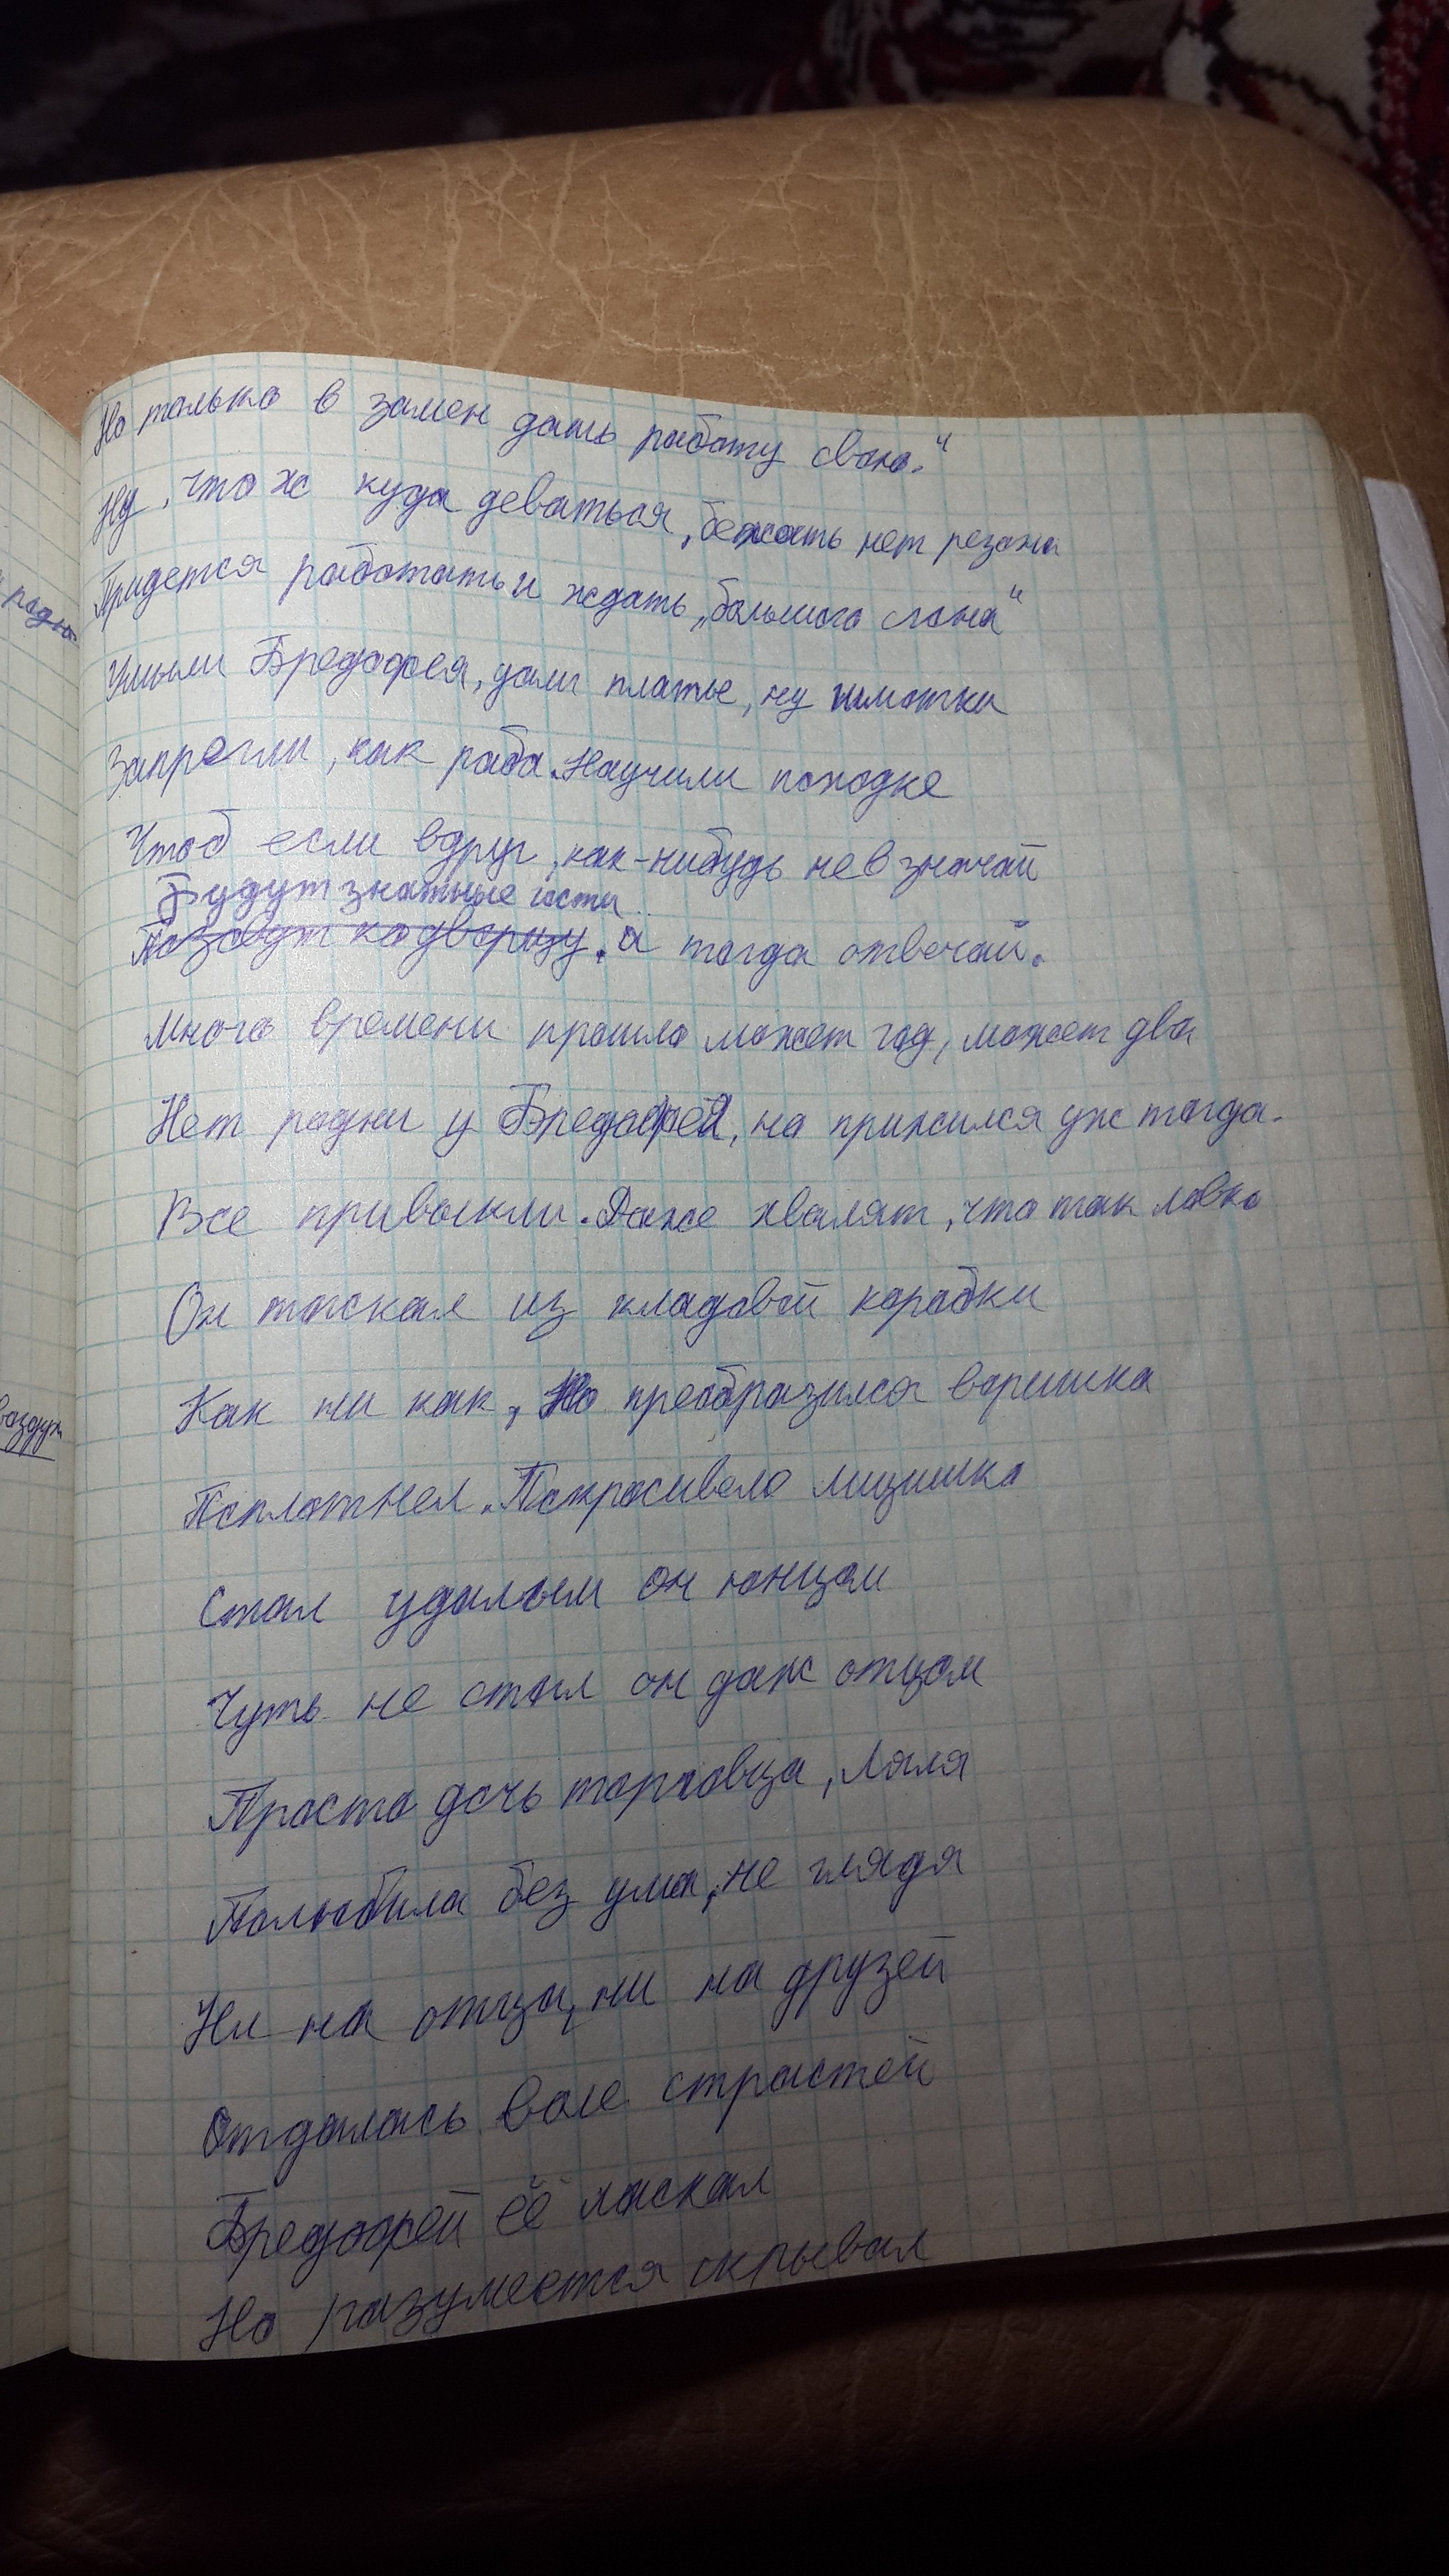 Но только в замен дать работу свою."
Ну, что ж куда деваться, бежать нет резона
Придется работать и ждать „большого слона"
Умыли Бредофея, дали платье, ну шмотки
Запрягли, как раба. Научили походке
Чтоб если вдруг, как-нибудь невзначай
Будут знатные гости
Позовут ко дворцу. а тогда отвечай.
Много времени прошло может год, может два
Нет родни у Бредофея, но прижился уж тогда.
Все привыкли. Даже хвалят, что так ловко
Он таскал из кладовой коробки
Как ни как, Но преобразился воришка
Поплотнел. Покрасивело лицишко
Стал удалым он юнцом
Чуть не стал он даж отцом
Просто дочь торговца, Ляля
Полюбила без ума, не глядя
Ни на отца, ни на друзей
Отдалась воле страстей
Бредофей её ласкал
Но разумеется скрывал
родно
воздух